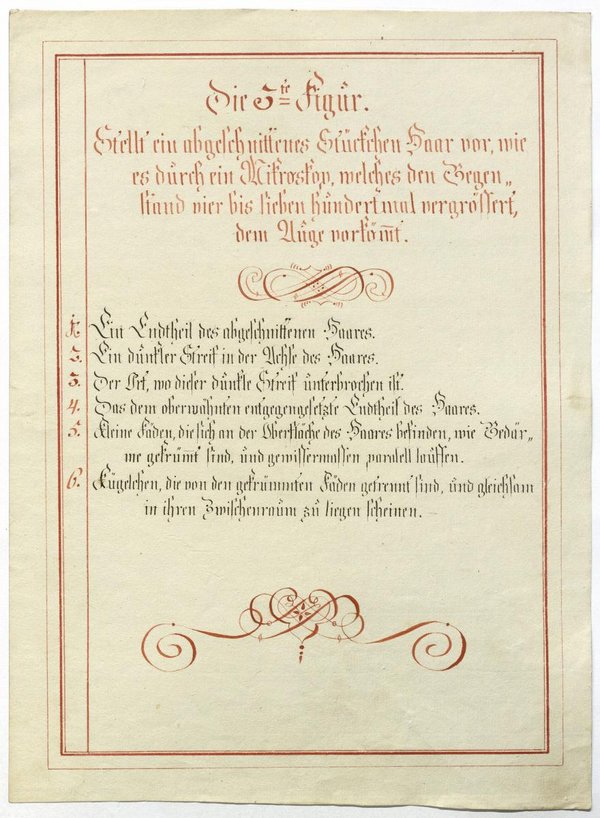 Die 3te Figur.
Stellt ein abgeschnittenes Stückchen Haar vor, wie
es durch ein Mikroskop, welches den Gegen„
stand vier bis sieben hundertmal vergrössert,
dem Auge vorkom̅t.
1. Ein Endtheil des abgeschnittenen Haares.
2. Ein dunkler Streif in der Achse des Haares.
3. Der Ort, wo dieser dunkle Streif unterbrochen ist.
4. Das dem oberwähnten entgegengesetzte Endtheil des Haares.
5. Kleine Fäden, die sich an der Oberfläche des Haares befinden, wie Gedär„
me gekrüm̅t sind, und gewissermassen paralell lauffen.
6. Kügelchen, die von den gekrümmten Fäden getrennt sind, und gleichsam
in ihren Zwischenraum zu liegen scheinen.